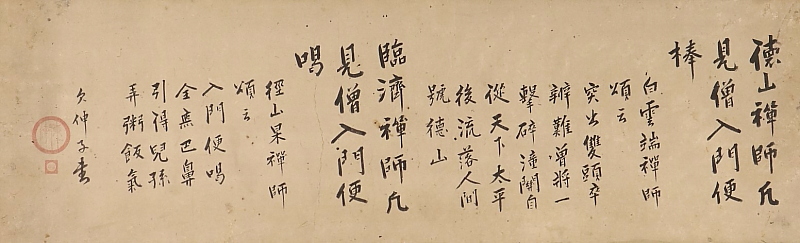 德山禪師凡
見僧入門便
棒
白雲端禪師
頌云
突出雙頭卒
辨難曾將一
擊碎潼關自
從天下太平
後流落人間
號德山
臨濟禪師凡
見僧入門便
喝
徑山杲禪師
頌云
入門便喝
全無巴鼻
引得兒孫
弄粥飯氣
仲子書